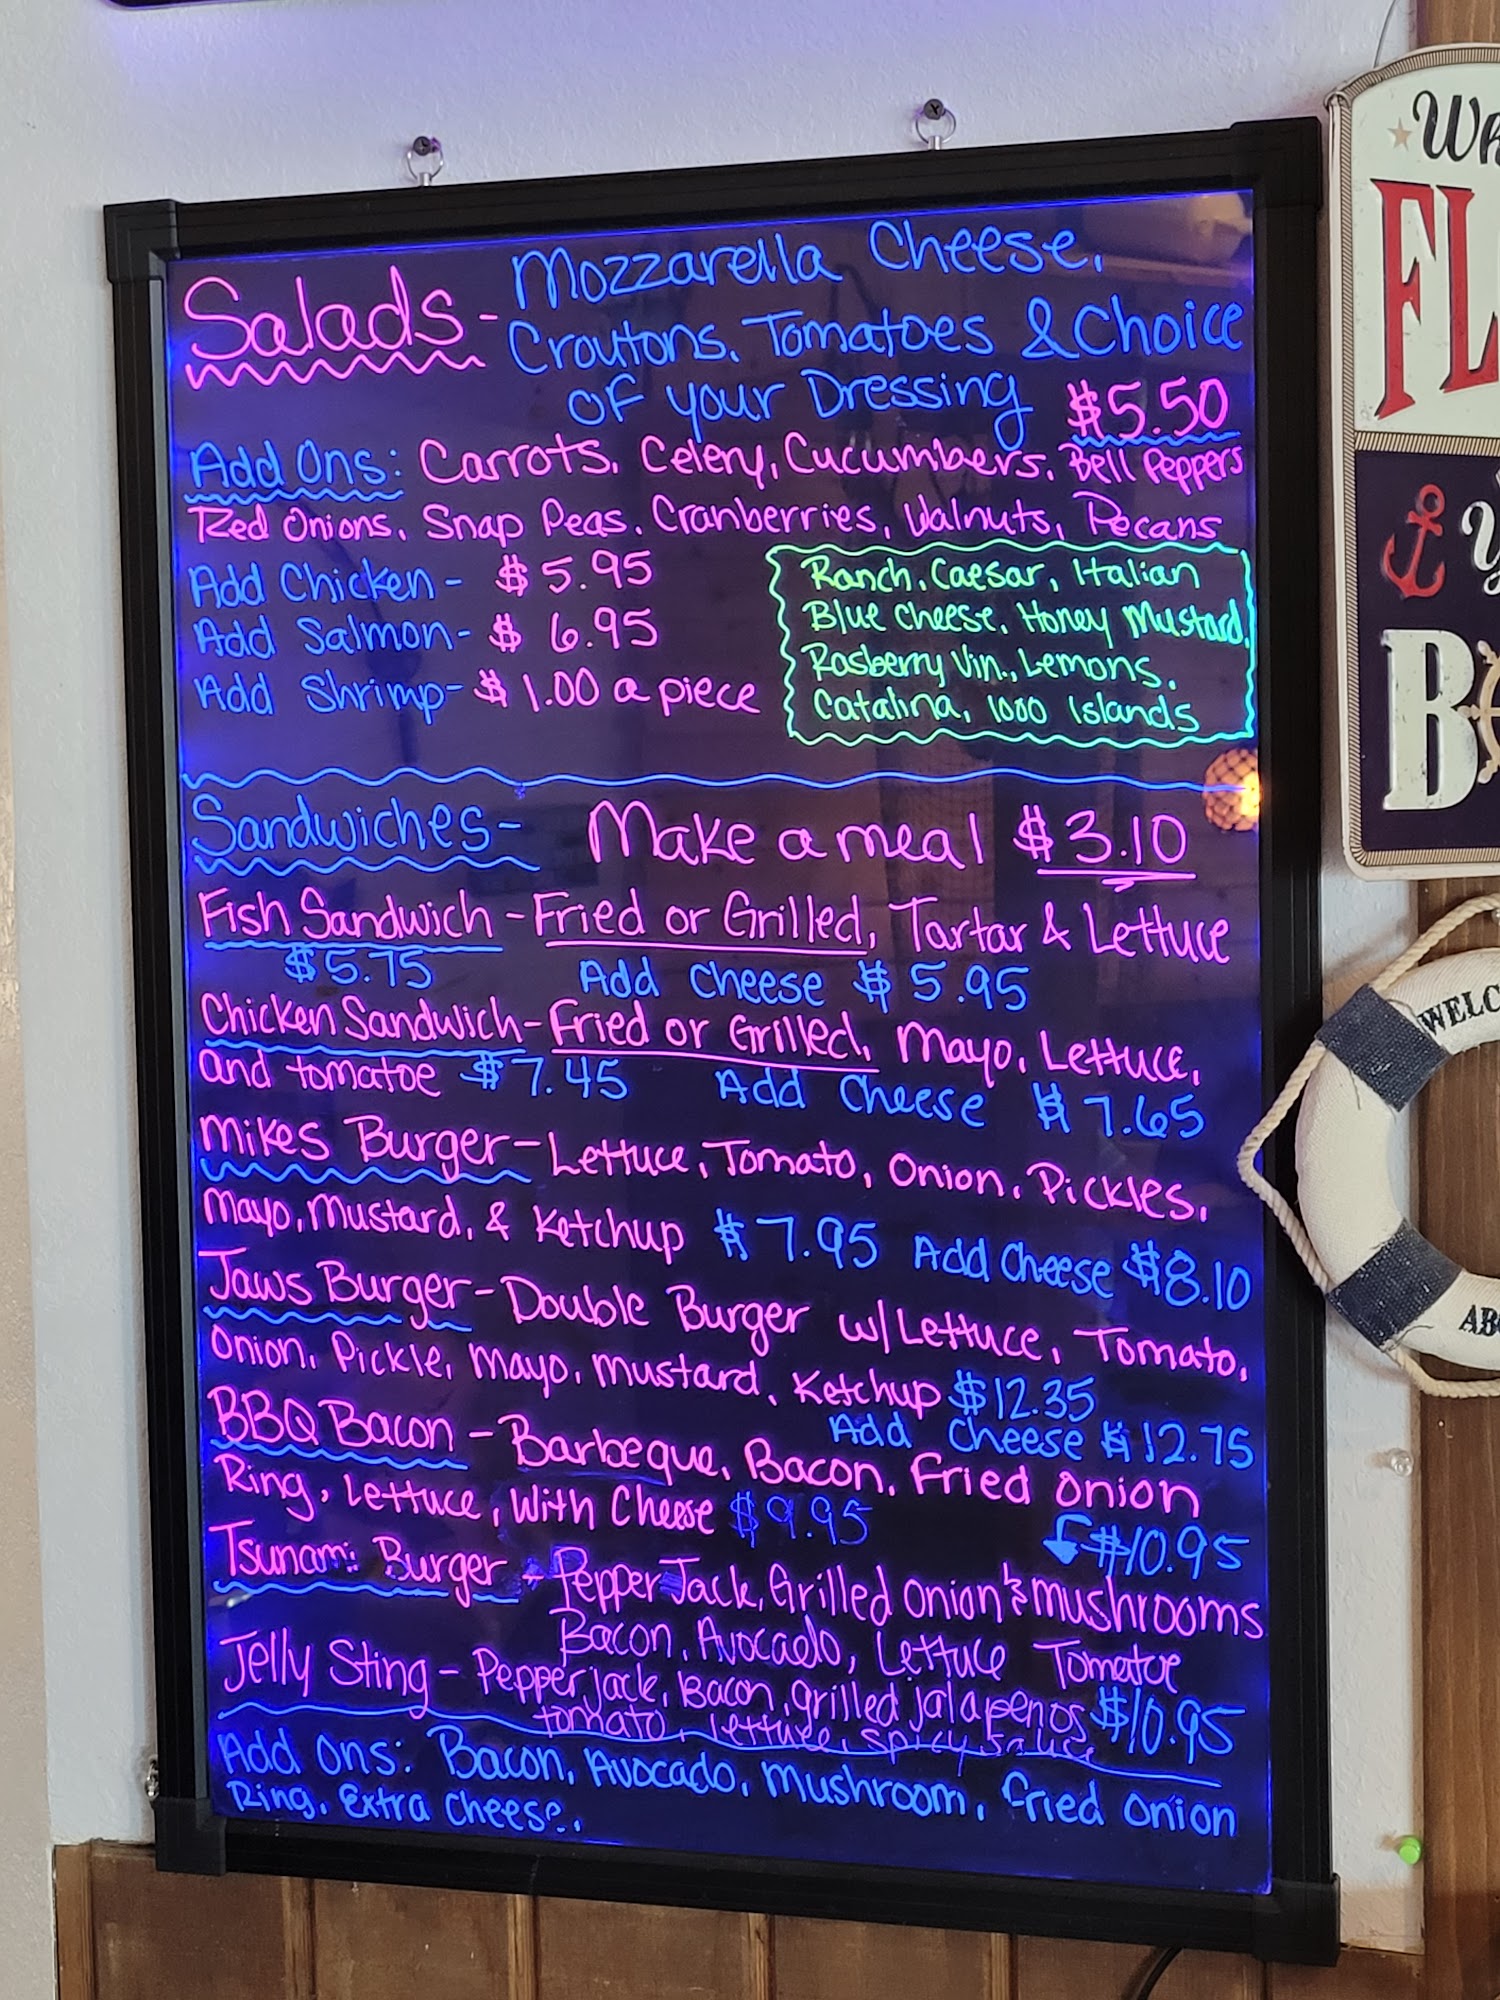 Salads - Mozzarella Cheese,
Croutons, Tomatoes & Choice
of your Dressing $5.50
Add Ons: Carrots, Celery, Cucumbers, Bell Peppers
Red Onions, Snap Peas, Cranberries, Walnuts, Pecans
Add Chicken - $5.95
Add Salmon - $6.95
Add Shrimp - $1.00 a piece
Ranch, Caesar, Italian
Blue Cheese, Honey Mustard,
Rasberry Vin., Lemons,
Catalina, 1000 Islands
Sandwiches - Make a meal $3.10
Fish Sandwich - Fried or Grilled, Tartar & Lettuce
$5.75 Add Cheese $5.95
Chicken Sandwich - Fried or Grilled, Mayo, Lettuce,
and tomatoe $7.45 Add Cheese $7.65
Mikes Burger - Lettuce, Tomato, Onion, Pickles,
Mayo, Mustard, & Ketchup $7.95 Add Cheese $8.10
Jaws Burger - Double Burger w/ Lettuce, Tomato,
Onion, Pickle, Mayo, Mustard, Ketchup $12.35
Add Cheese $12.75
BBQ Bacon - Barbeque, Bacon, Fried Onion
Ring, Lettuce, With Cheese $9.95
$10.95
Tsunami Burger - Pepper Jack, Grilled Onion & Mushrooms
Bacon, Avocado, Lettuce Tomatoe
Jelly Sting - Pepper jack, Bacon, grilled jalapenos $10.95
tomato, lettuce, spicy sauce
Add Ons: Bacon, Avocado, Mushroom, Fried Onion
Ring, Extra Cheese.
FL
B
WELC
AB